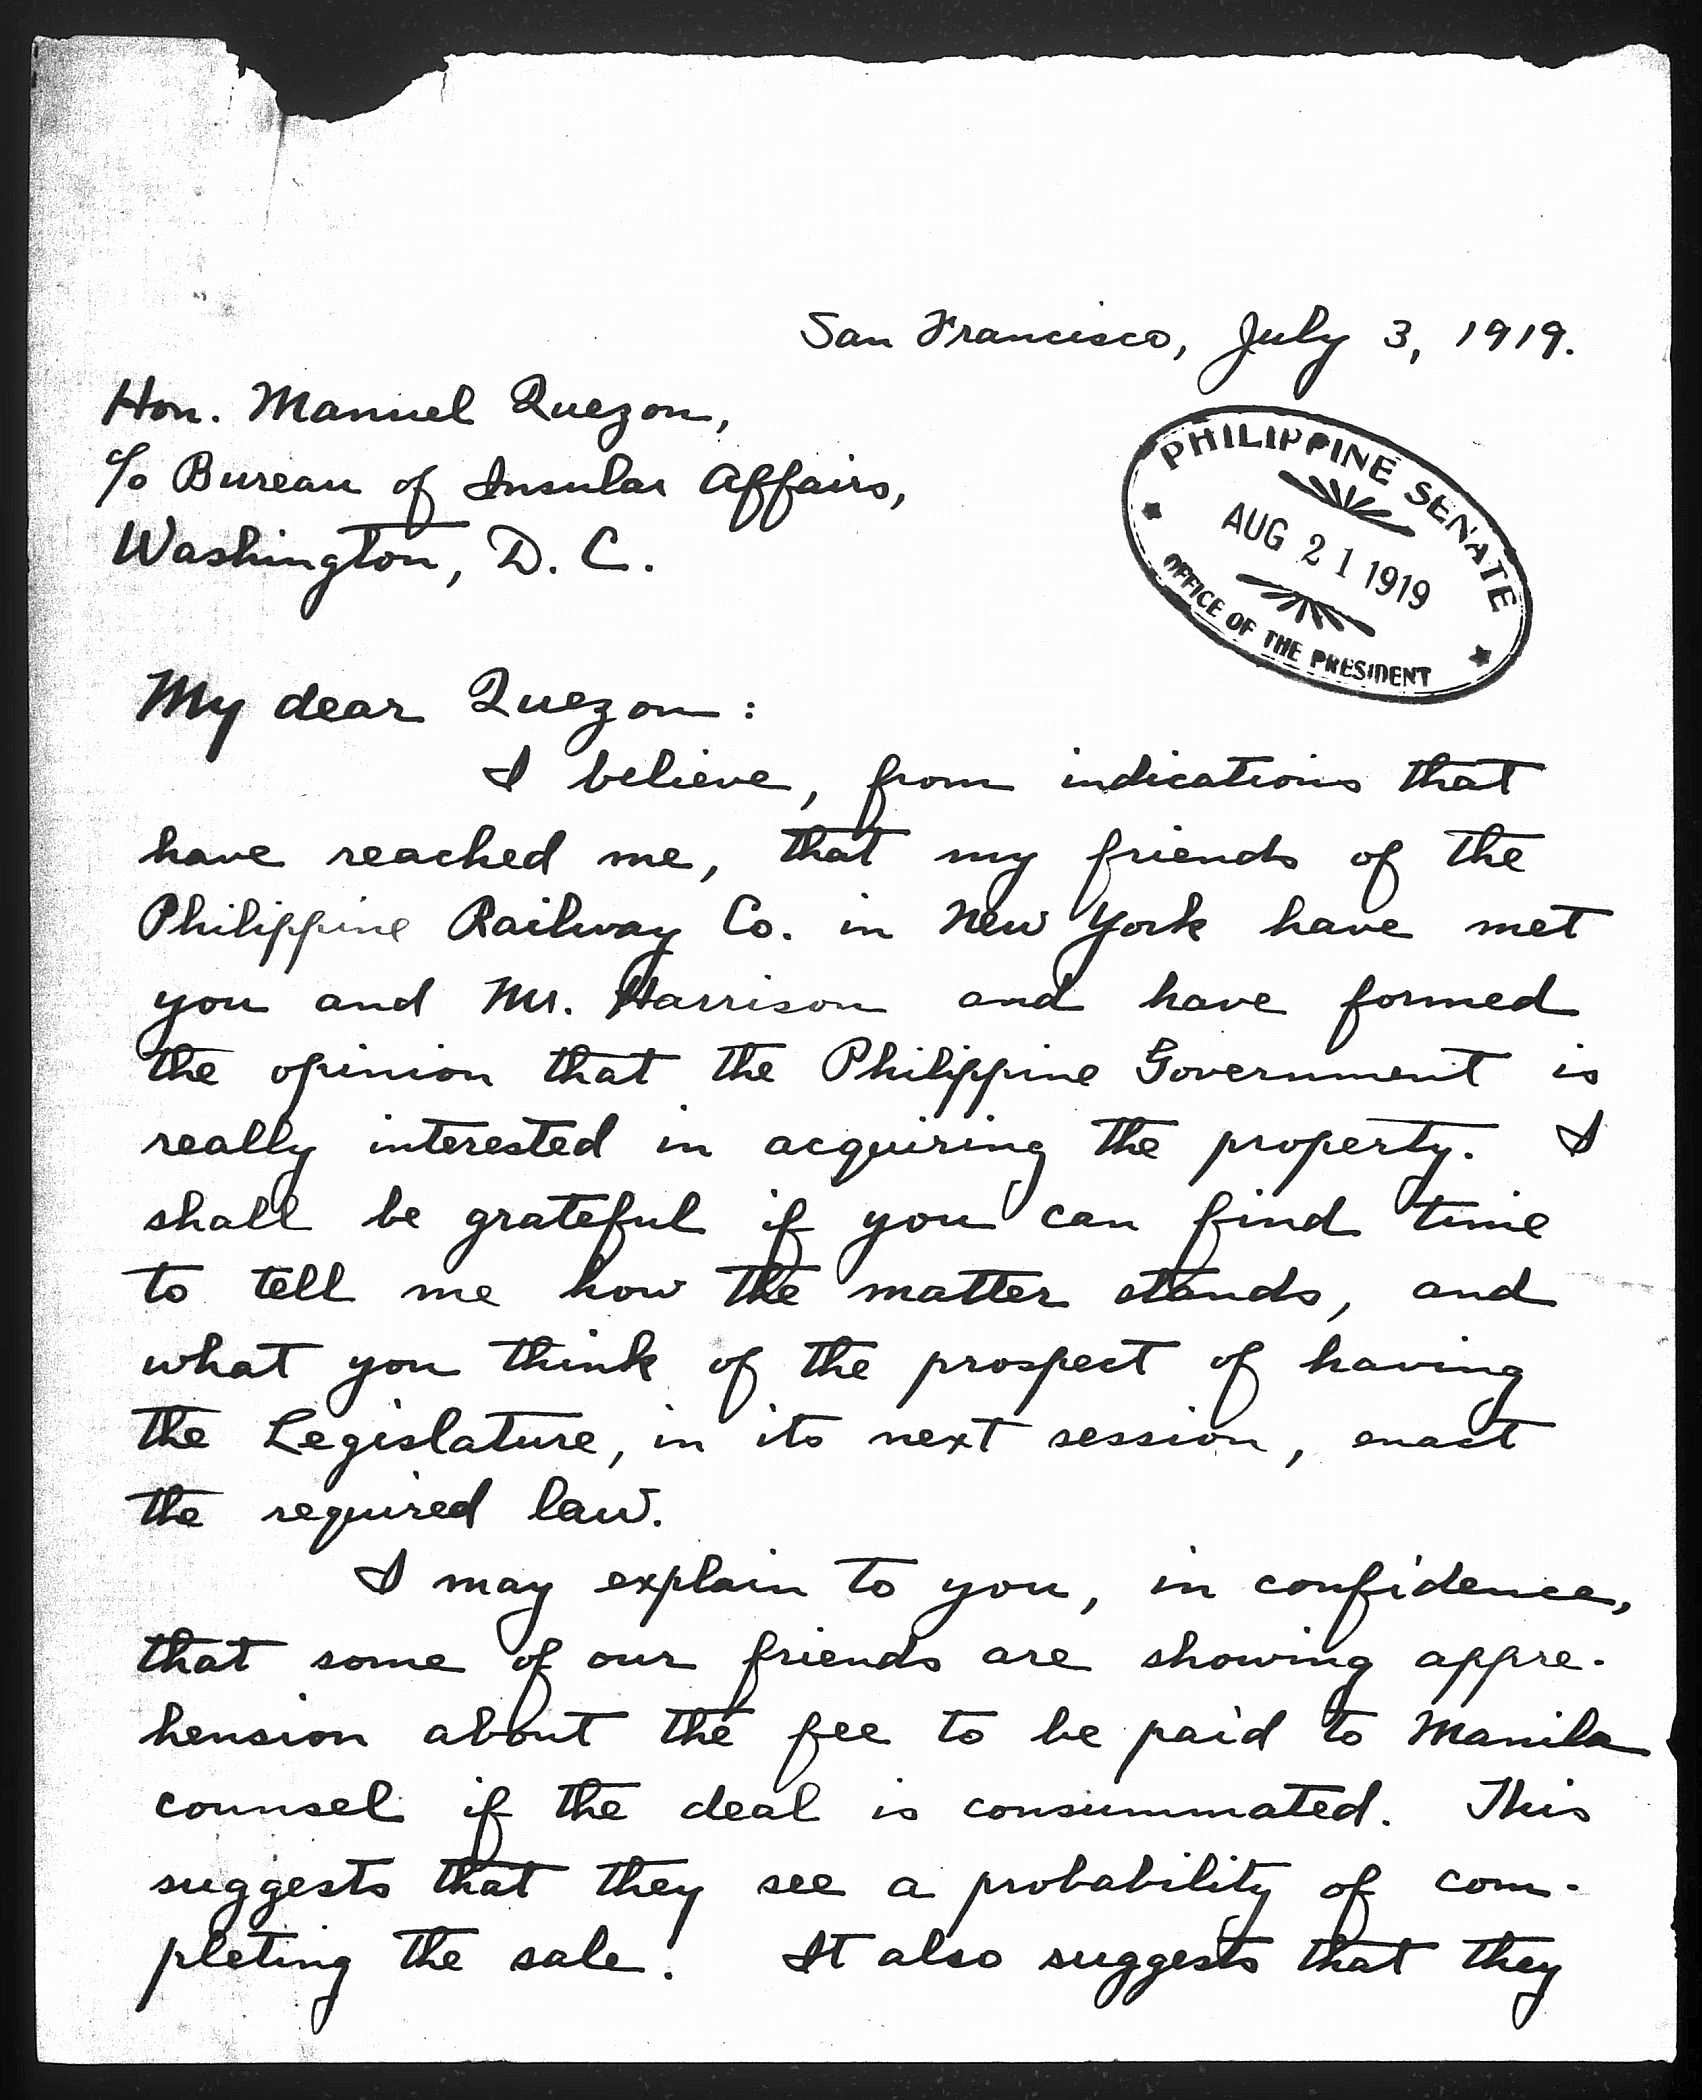 San Francisco, July 3, 1919.
Hon. Manuel Quezon,
c/o Bureau of Insular Affairs,
Washington, D. C.
PHILIPPINE SENATE
AUG 21 1919
OFFICE OF THE PRESIDENT
My dear Quezon:
I believe, from indications that
have reached me, that my friends of the
Philippine Railway Co. in New York have met
you and Mr. Harrison and have formed
the opinion that the Philippine Government is
really interested in acquiring the property. I
shall be grateful if you can find time
to tell me how the matter stands, and
what you think of the prospect of having
the Legislature, in its next session, enact
the required law.
I may explain to you, in confidence,
that some of our friends are showing appre-
hension about the fee to be paid to Manila
counsel if the deal is consummated. This
suggests that they see a probability of com-
pleting the sale. It also suggests that they